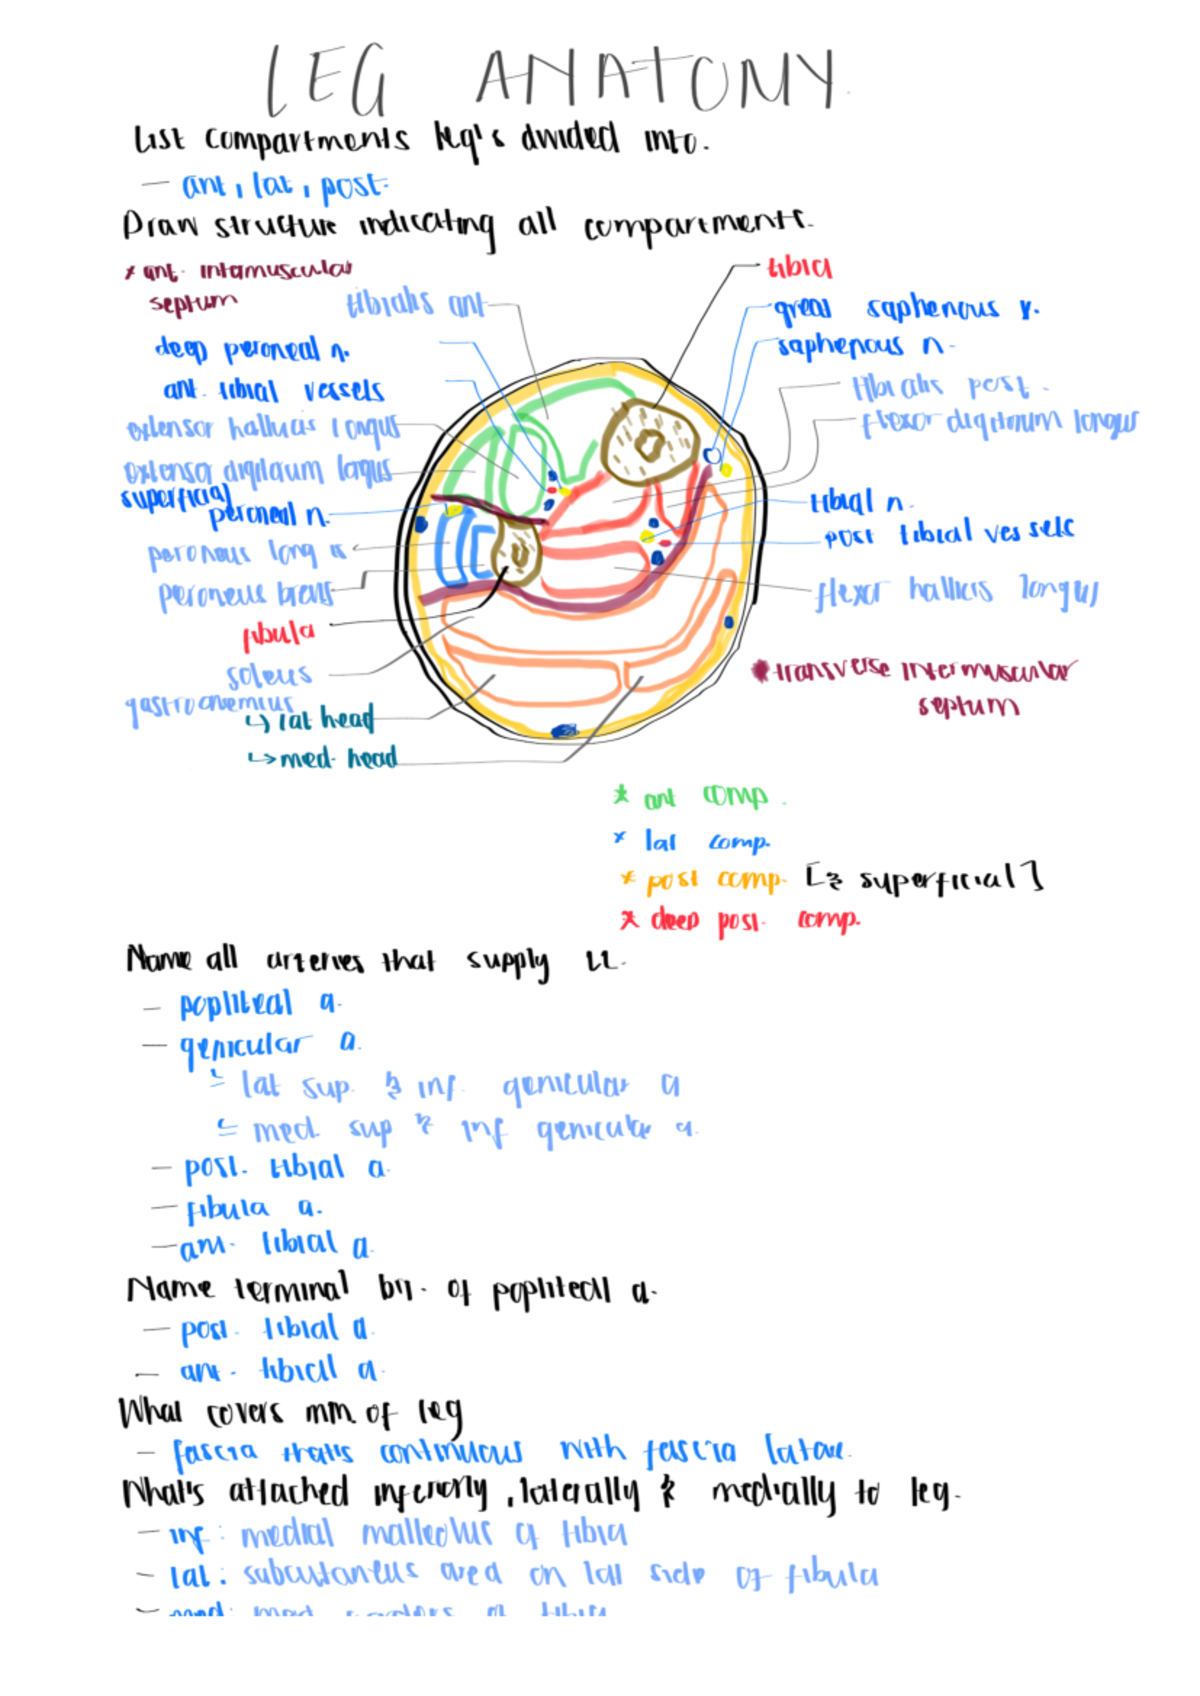 LEG ANATOMY
List compartments leg's divided into.
— ant, lat, post.
Draw structure indicating all compartments.
* ant. intamuscular
septum
tibialis ant
deep peroneal n.
ant. tibial vessels
extensor hallucis longus
extensor digitaum logus
superficial
peroneal n.
peroneus longus
peroneus brevis
fibula
soleus
gastrocnemius
↳ lat head
↳ med. head
tibia
great saphenous v.
saphenous n.
tibialis post.
flexor digitorum longus
tibial n.
post tibial vessels
flexor hallicis longus
* transverse intermuscular
septum
* ant comp.
* lat comp.
* post comp. [& superficial]
* deep post. comp.
Name all arteries that supply LL.
— popliteal a.
— genicular a.
↳ lat sup. & inf. genicular a
↳ med. sup & inf genicular a.
— post. tibial a.
— fibula a.
— ant. tibial a.
Name terminal br. of popliteal a.
— post. tibial a.
— ant. tibial a.
What covers mm. of leg
— fascia that's continuous with fascia latae.
What's attached inferiorly, laterally & medially to leg.
— inf: medial malleolus of tibia
— lat: subcutaneus area on lat side of fibula
— med: med